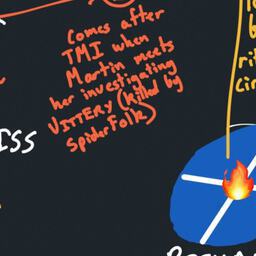 Comes after
TMI when
Martin meets
her investigating
VITTERY (killed by
SpiderFolk)
ISS